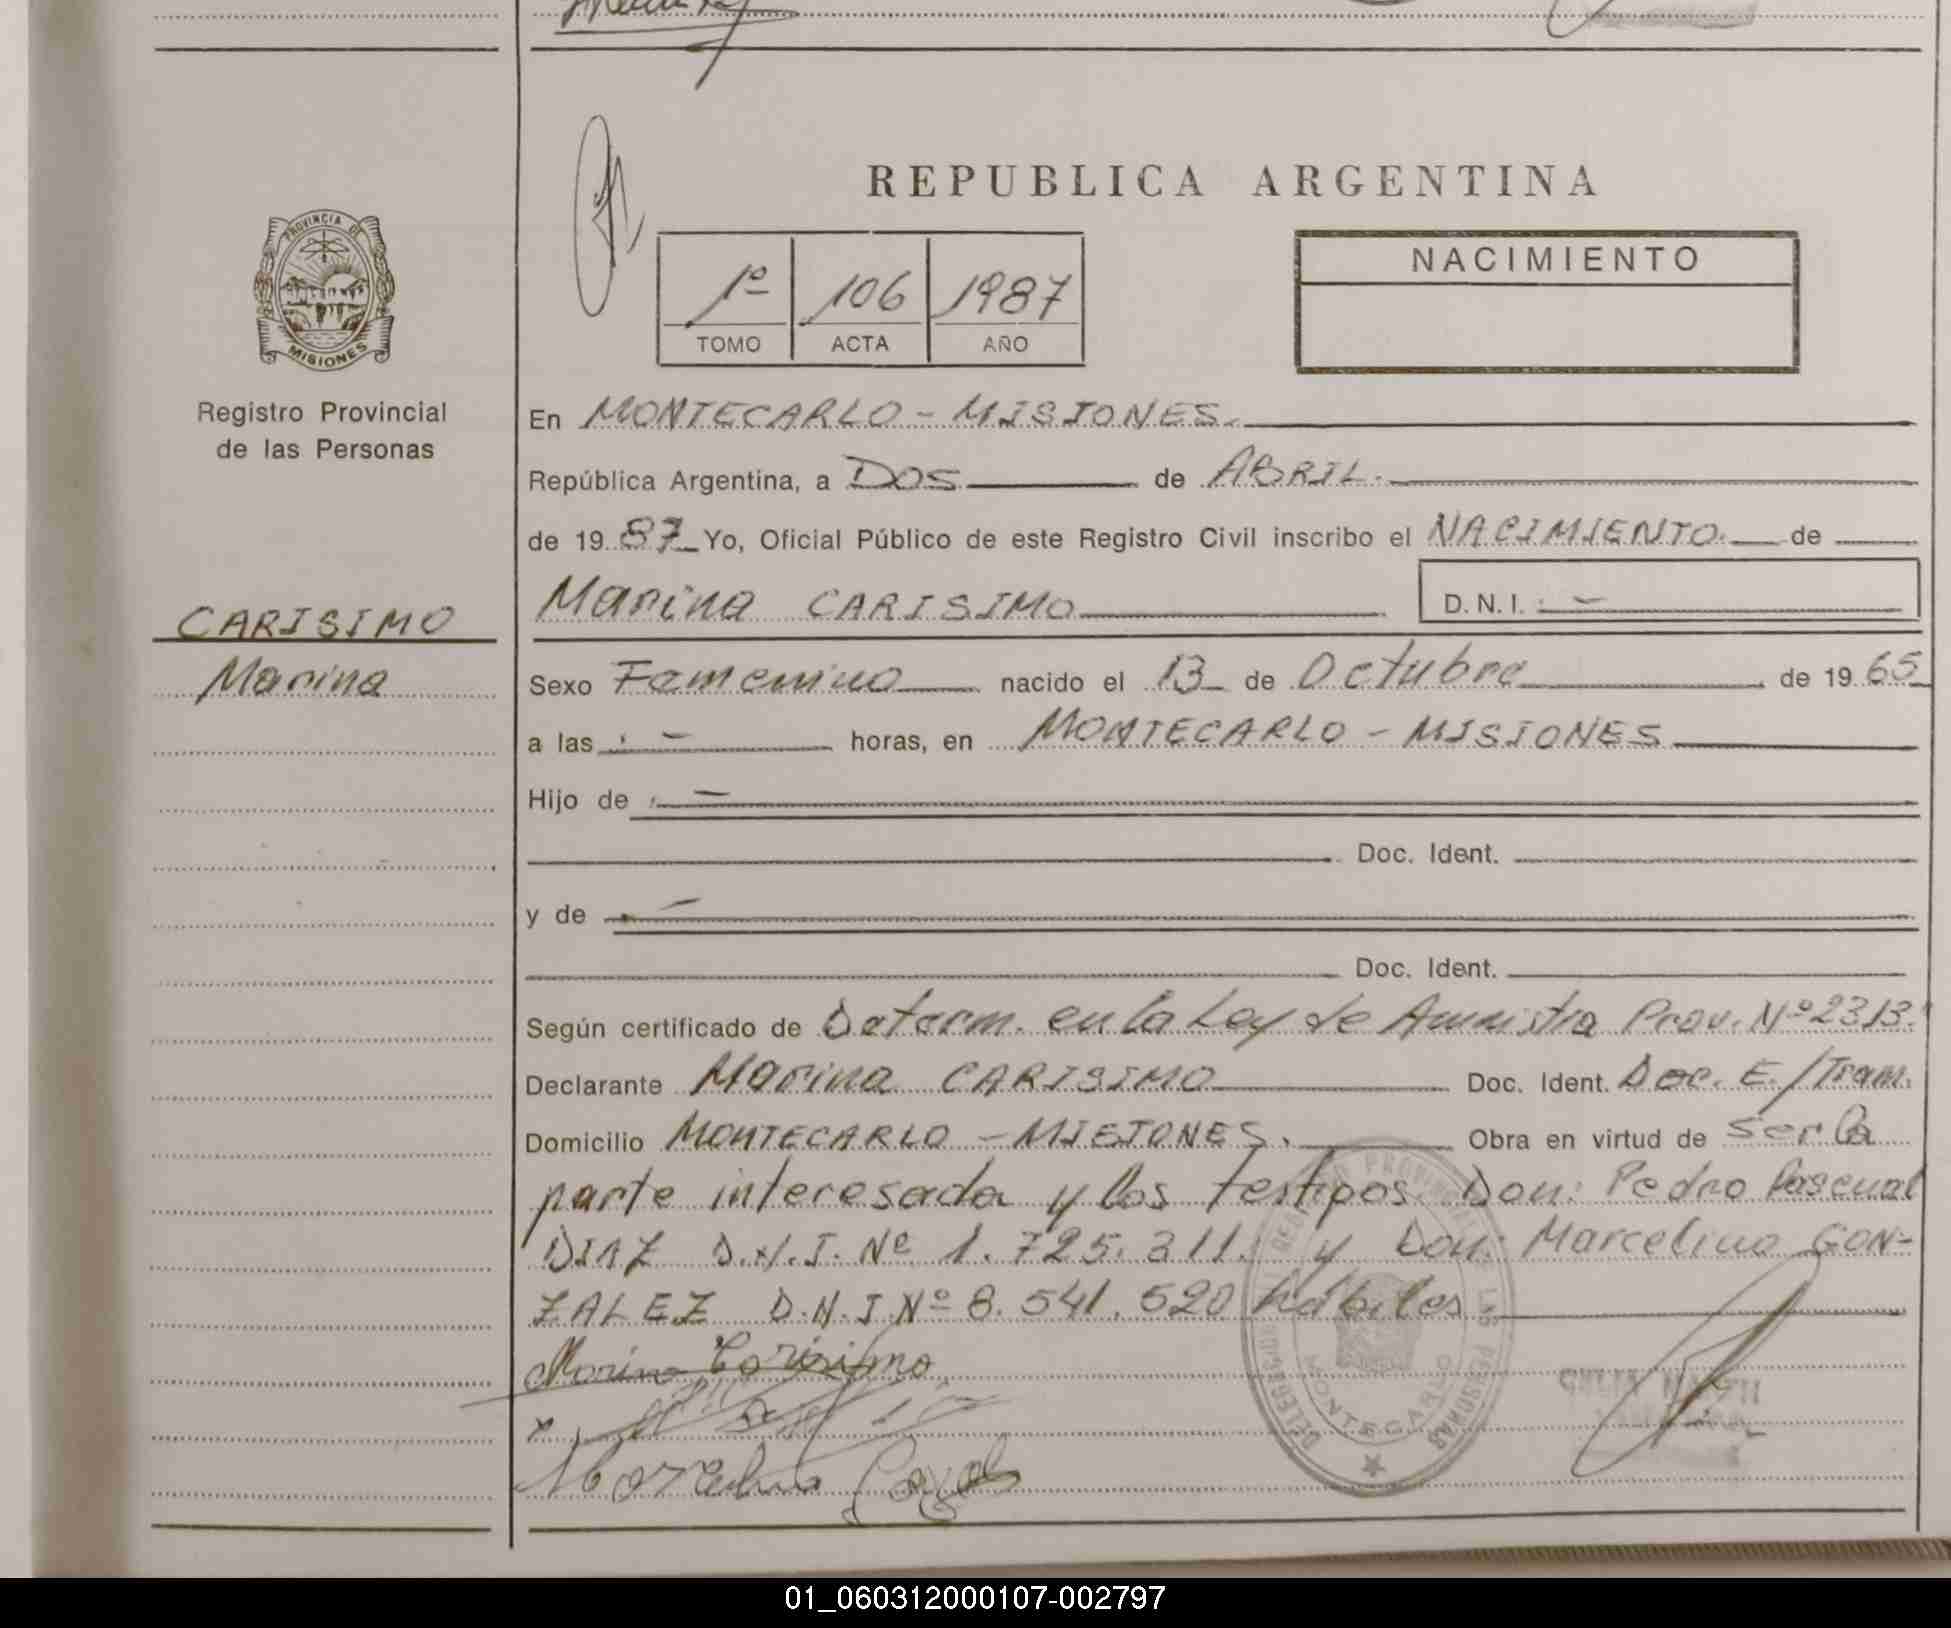 REPUBLICA ARGENTINA
PROVINCIA DE
MISIONES
Registro Provincial
de las Personas
CARISIMO
Marina
1º 106 1987
TOMO ACTA AÑO
NACIMIENTO
En MONTECARLO - MISIONES.
República Argentina, a DOS de ABRIL.
de 19 87 Yo, Oficial Público de este Registro Civil inscribo el NACIMIENTO. de
Marina CARISIMO D.N.I. -
Sexo Femenino nacido el 13 de Octubre de 19 65
a las - horas, en MONTECARLO - MISIONES
Hijo de -
Doc. Ident.
y de -
Doc. Ident.
Según certificado de Determ. en la Ley de Amnistia Prov. Nº 2313.
Declarante Marina CARISIMO Doc. Ident. Doc. E./Tram.
Domicilio MONTECARLO - MISIONES. Obra en virtud de ser la
parte interesada y los testigos Don: Pedro Pascual
DIAZ D.N.I. Nº 1.725.311. y Don: Marcelino GON-
ZALEZ D.N.I Nº 8.541.520 hábiles.
Marina Carisimo
MONTECARLO
01_060312000107-002797